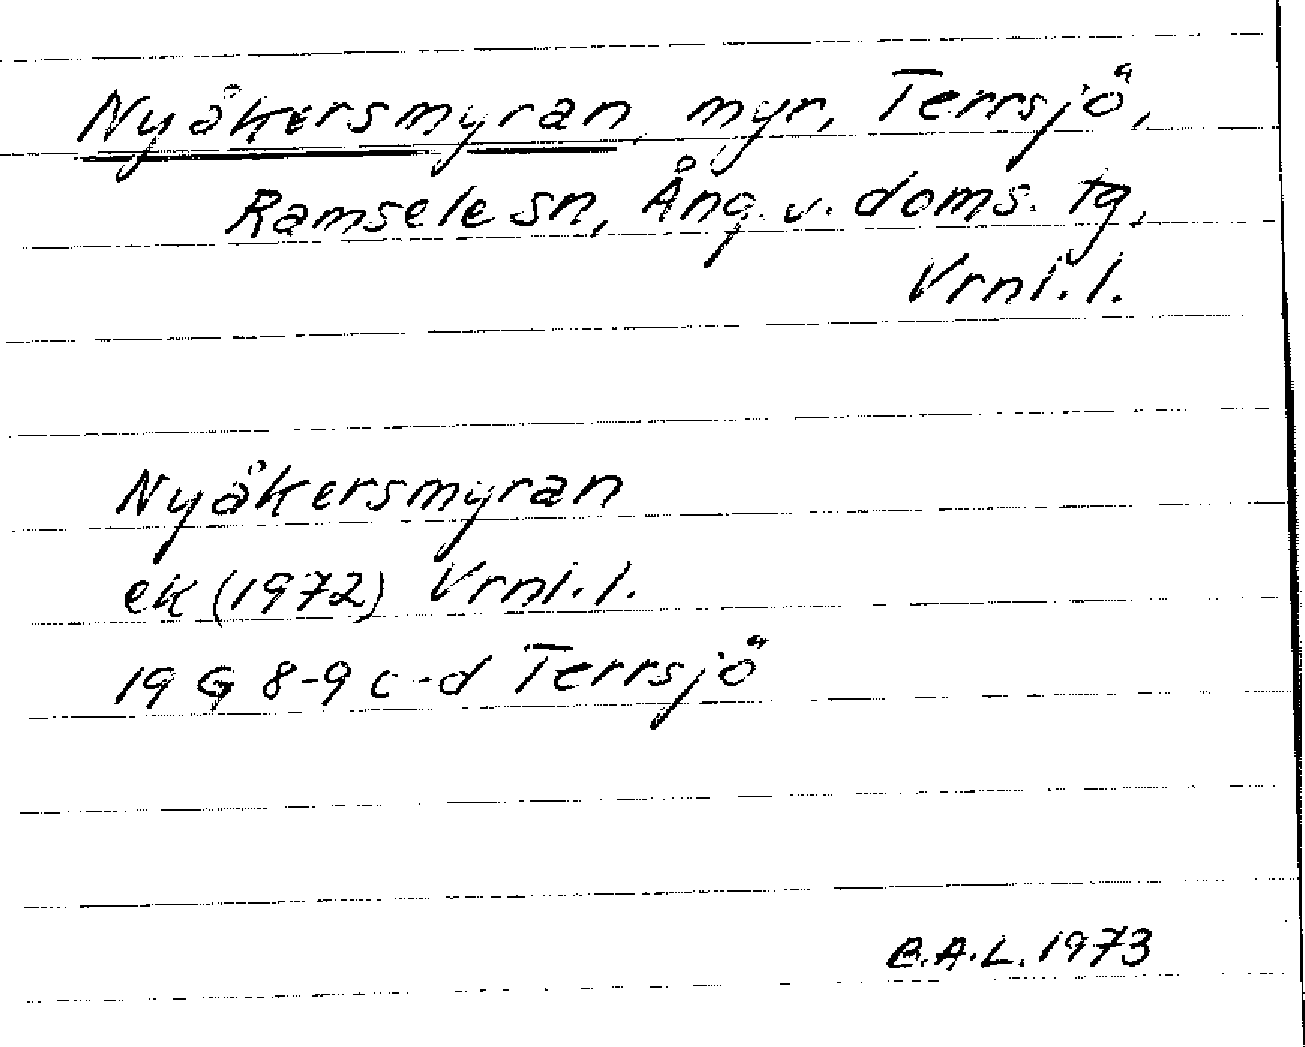 Nyåkersmyran, myr, Terrsjö,
Ramsele sn, Ång. v. doms. tg,
Vrnl. l.
Nyåkersmyran
ek (1972) Vrnl. l.
19 G 8-9 c-d Terrsjö
B.A.L. 1973